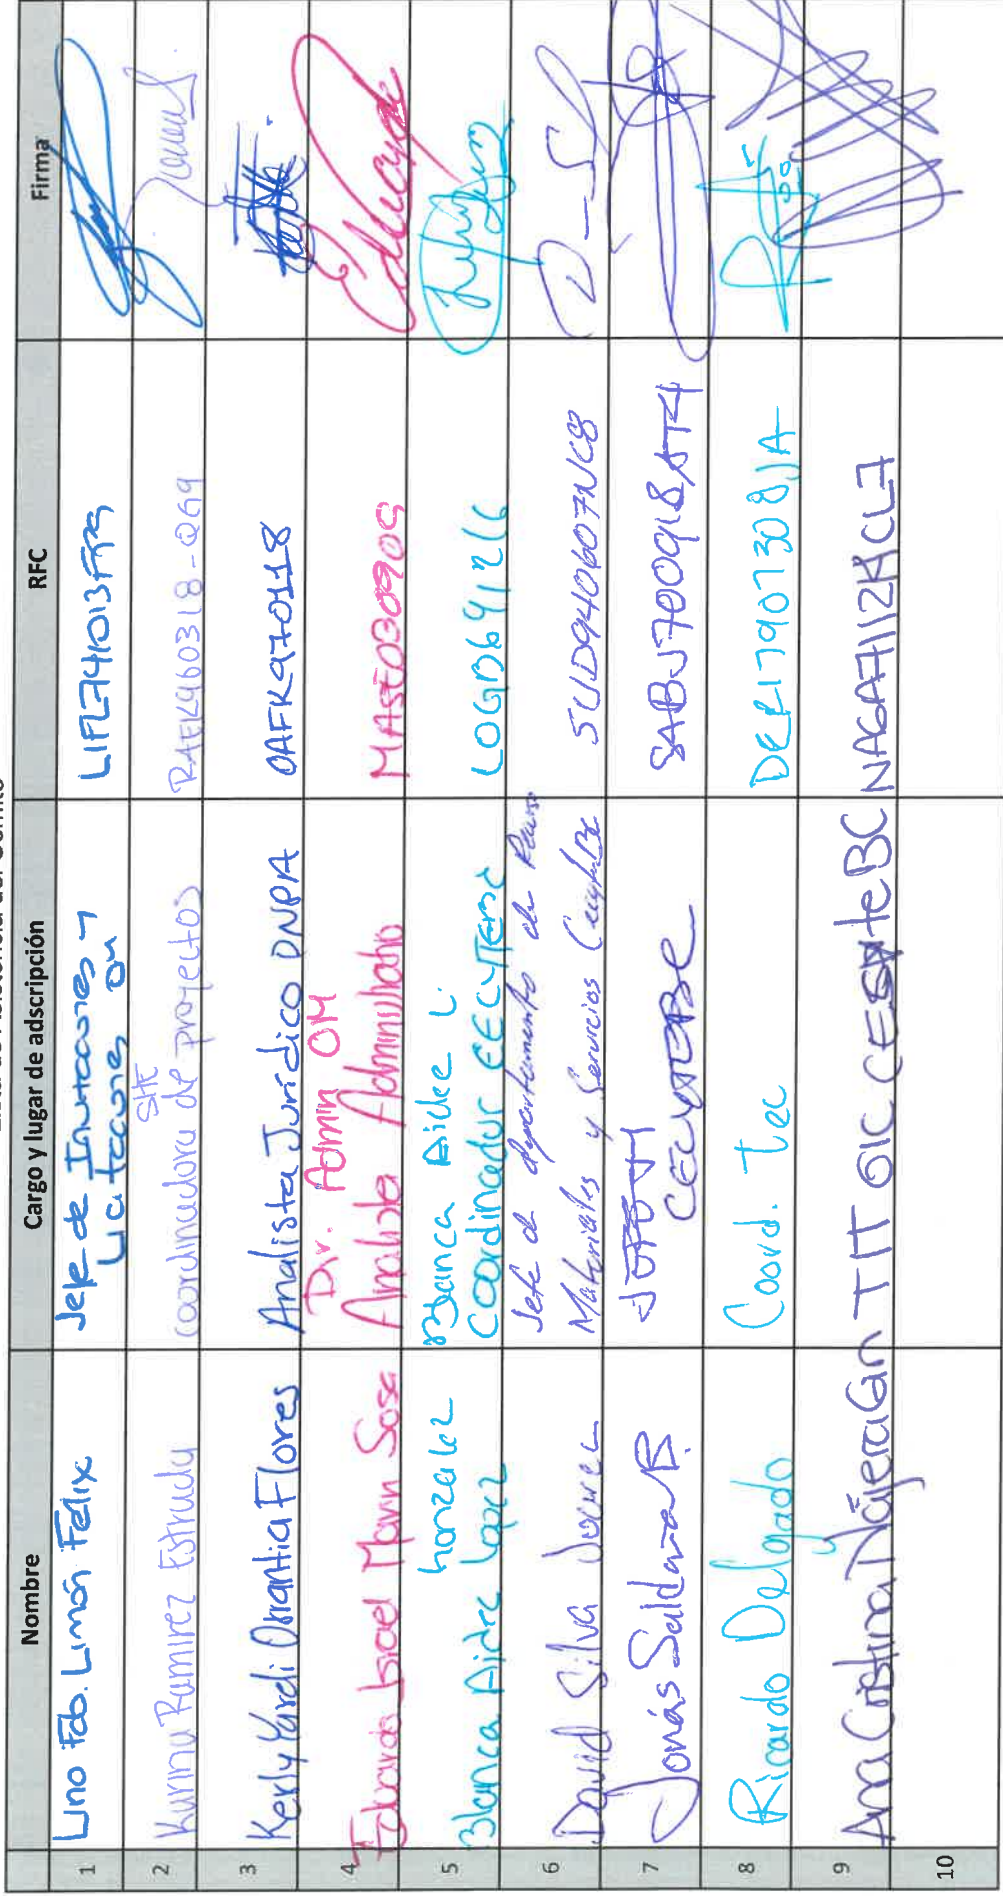 Lista de Asistencia del Comité
Nombre Cargo y lugar de adscripción RFC Firma
1 Lino Fab. Limón Felix Jefe de
2 Karina Ramirez Estrada SHE coordinadora de proyectos RAEK960318-QG9
3 Kerly Yardi Orrantia Flores Analista Jurídico DNPA OAFK970118
4 Eduardo Israel Marin Sosa Dir. Admin OM
Analista Administrativo MASE030909
5 Blanca Aidee Lopez Gonzalez Blanca Aidee L.
Coordinador CECYTEBC LOGB691216
6 David Silva Jefe de departamento de Recursos
Materiales y Servicios CecyteBC SUD940607NC8
7 Jonás Saldaña B. CECYTEBC SABJ700918AT4
8 Ricardo Delgado Coord. Tec DERI790730
9 Ana Cristina Nájera Gn TIT OIC CECyteBC
10